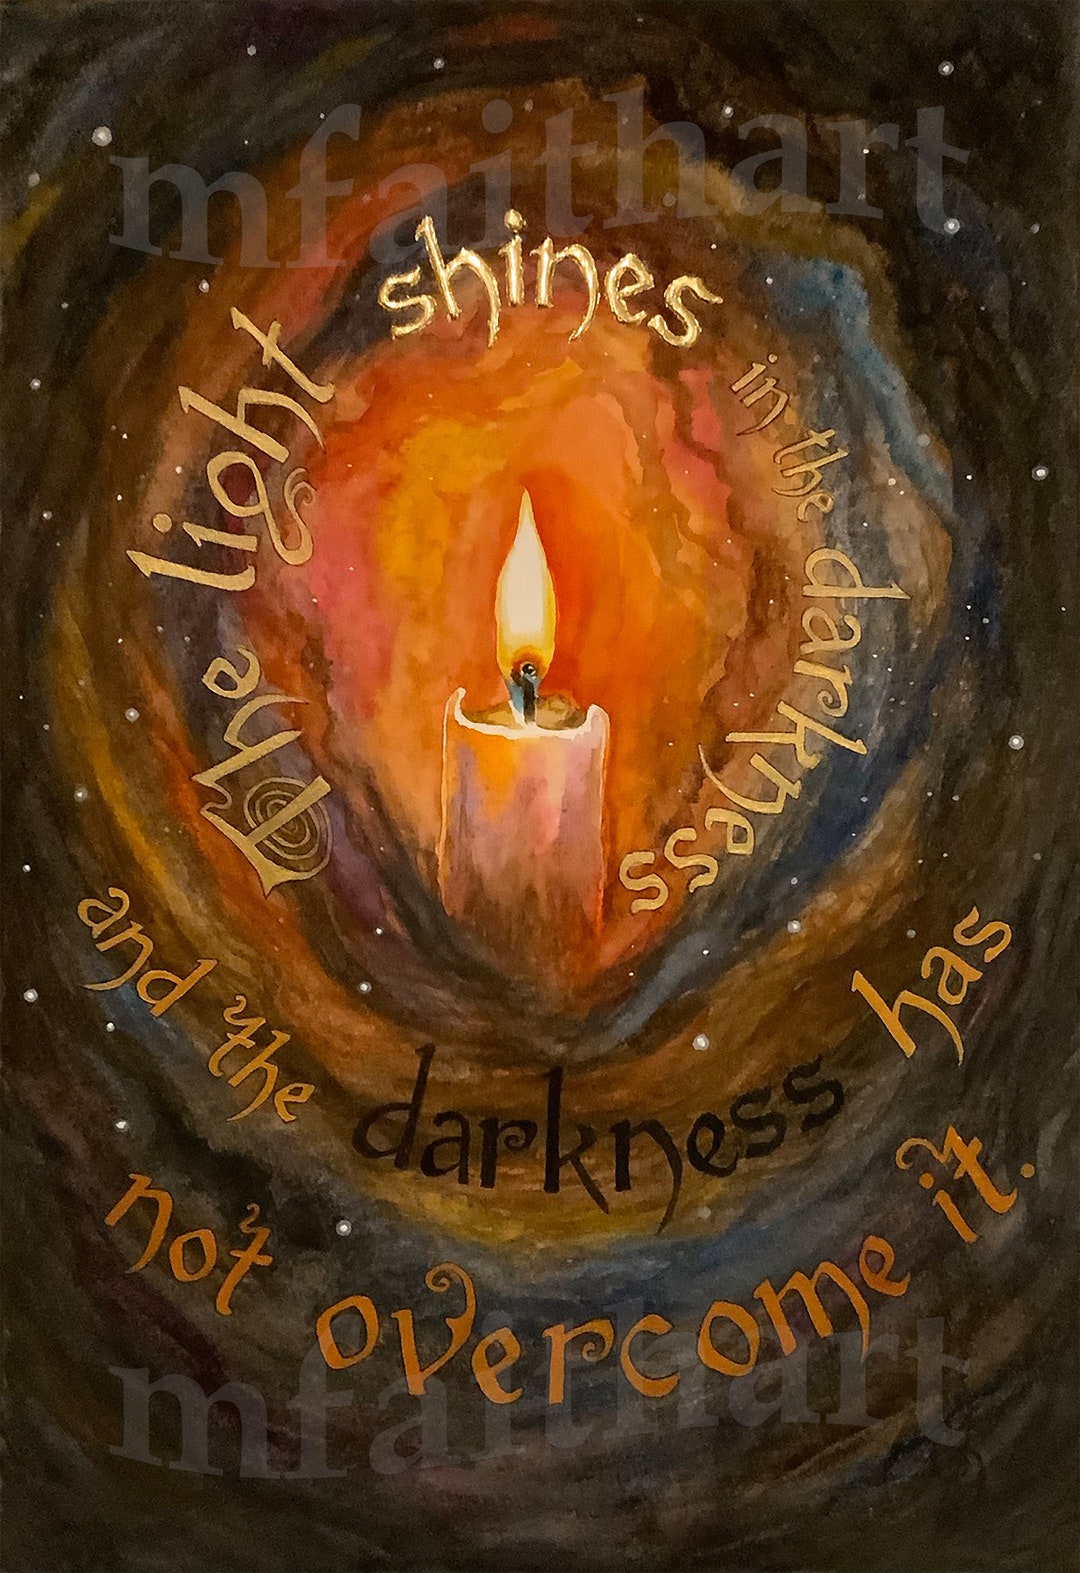 mfaithart
The light shines in the darkness
and the darkness has
not overcome it.
mfaithart